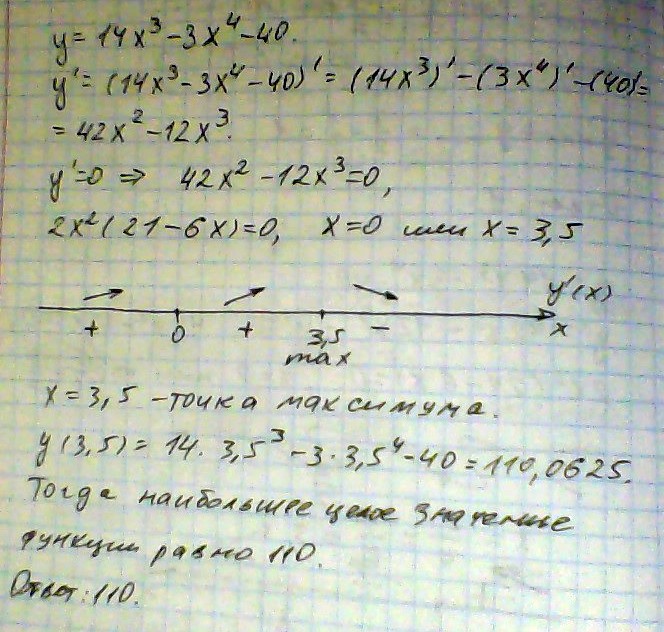 y = 14x³ - 3x⁴ - 40.
y' = (14x³ - 3x⁴ - 40)' = (14x³)' - (3x⁴)' - (40)' =
= 42x² - 12x³.
y' = 0 ⇒ 42x² - 12x³ = 0,
2x²(21 - 6x) = 0, x = 0 или x = 3,5
y'(x)
+ 0 + 3,5 - x
max
x = 3,5 - точка максимума.
y(3,5) = 14 · 3,5³ - 3 · 3,5⁴ - 40 = 110,0625.
Тогда наибольшее целое значение
функции равно 110.
Ответ: 110.